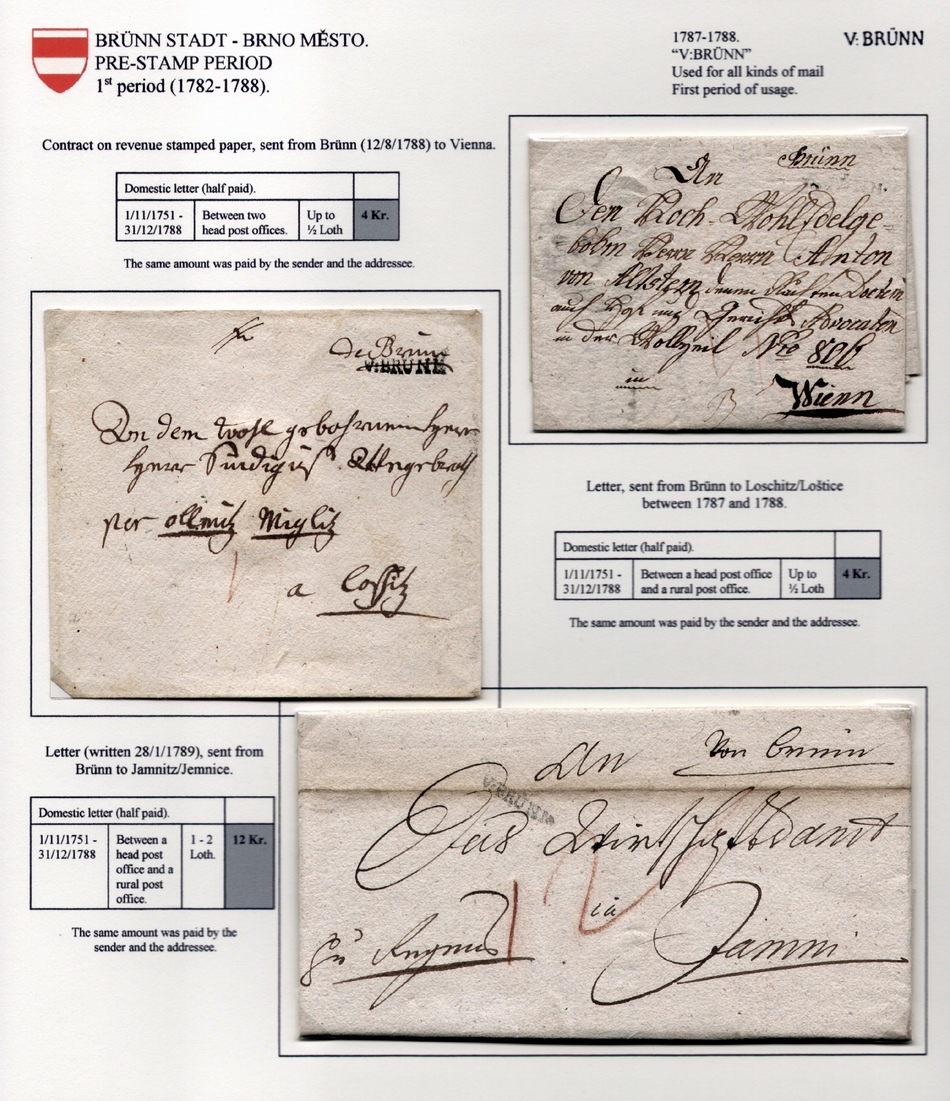 BRÜNN STADT - BRNO MĚSTO.
PRE-STAMP PERIOD
1st period (1782-1788).
1787-1788.
“V:BRÜNN”
Used for all kinds of mail
First period of usage.
V: BRÜNN
Contract on revenue stamped paper, sent from Brünn (12/8/1788) to Vienna.
Domestic letter (half paid).
1/11/1751 - 31/12/1788 Between two head post offices. Up to ½ Loth 4 Kr.
The same amount was paid by the sender and the addressee.
Brünn
An
Den Hoch- Wohledelge-
bohrn Herrn Herrn Anton
von Altstern
auch Hof und Gerichts Advocaten
in der Wollzeil Nro 806
in
Wienn
De Brünn
V: BRÜNN
An dem wohl gebohrnen Herrn
Herr
per Ollmütz Müglitz
a Loschitz
Letter, sent from Brünn to Loschitz/Loštice
between 1787 and 1788.
Domestic letter (half paid).
1/11/1751 - 31/12/1788 Between a head post office and a rural post office. Up to ½ Loth 4 Kr.
The same amount was paid by the sender and the addressee.
Letter (written 28/1/1789), sent from
Brünn to Jamnitz/Jemnice.
Domestic letter (half paid).
1/11/1751 - 31/12/1788 Between a head post office and a rural post office. 1 - 2 Loth. 12 Kr.
The same amount was paid by the
sender and the addressee.
An Von Brünn
V: BRÜNN
Das Wirtschaftsamt
12
zu
Jamni